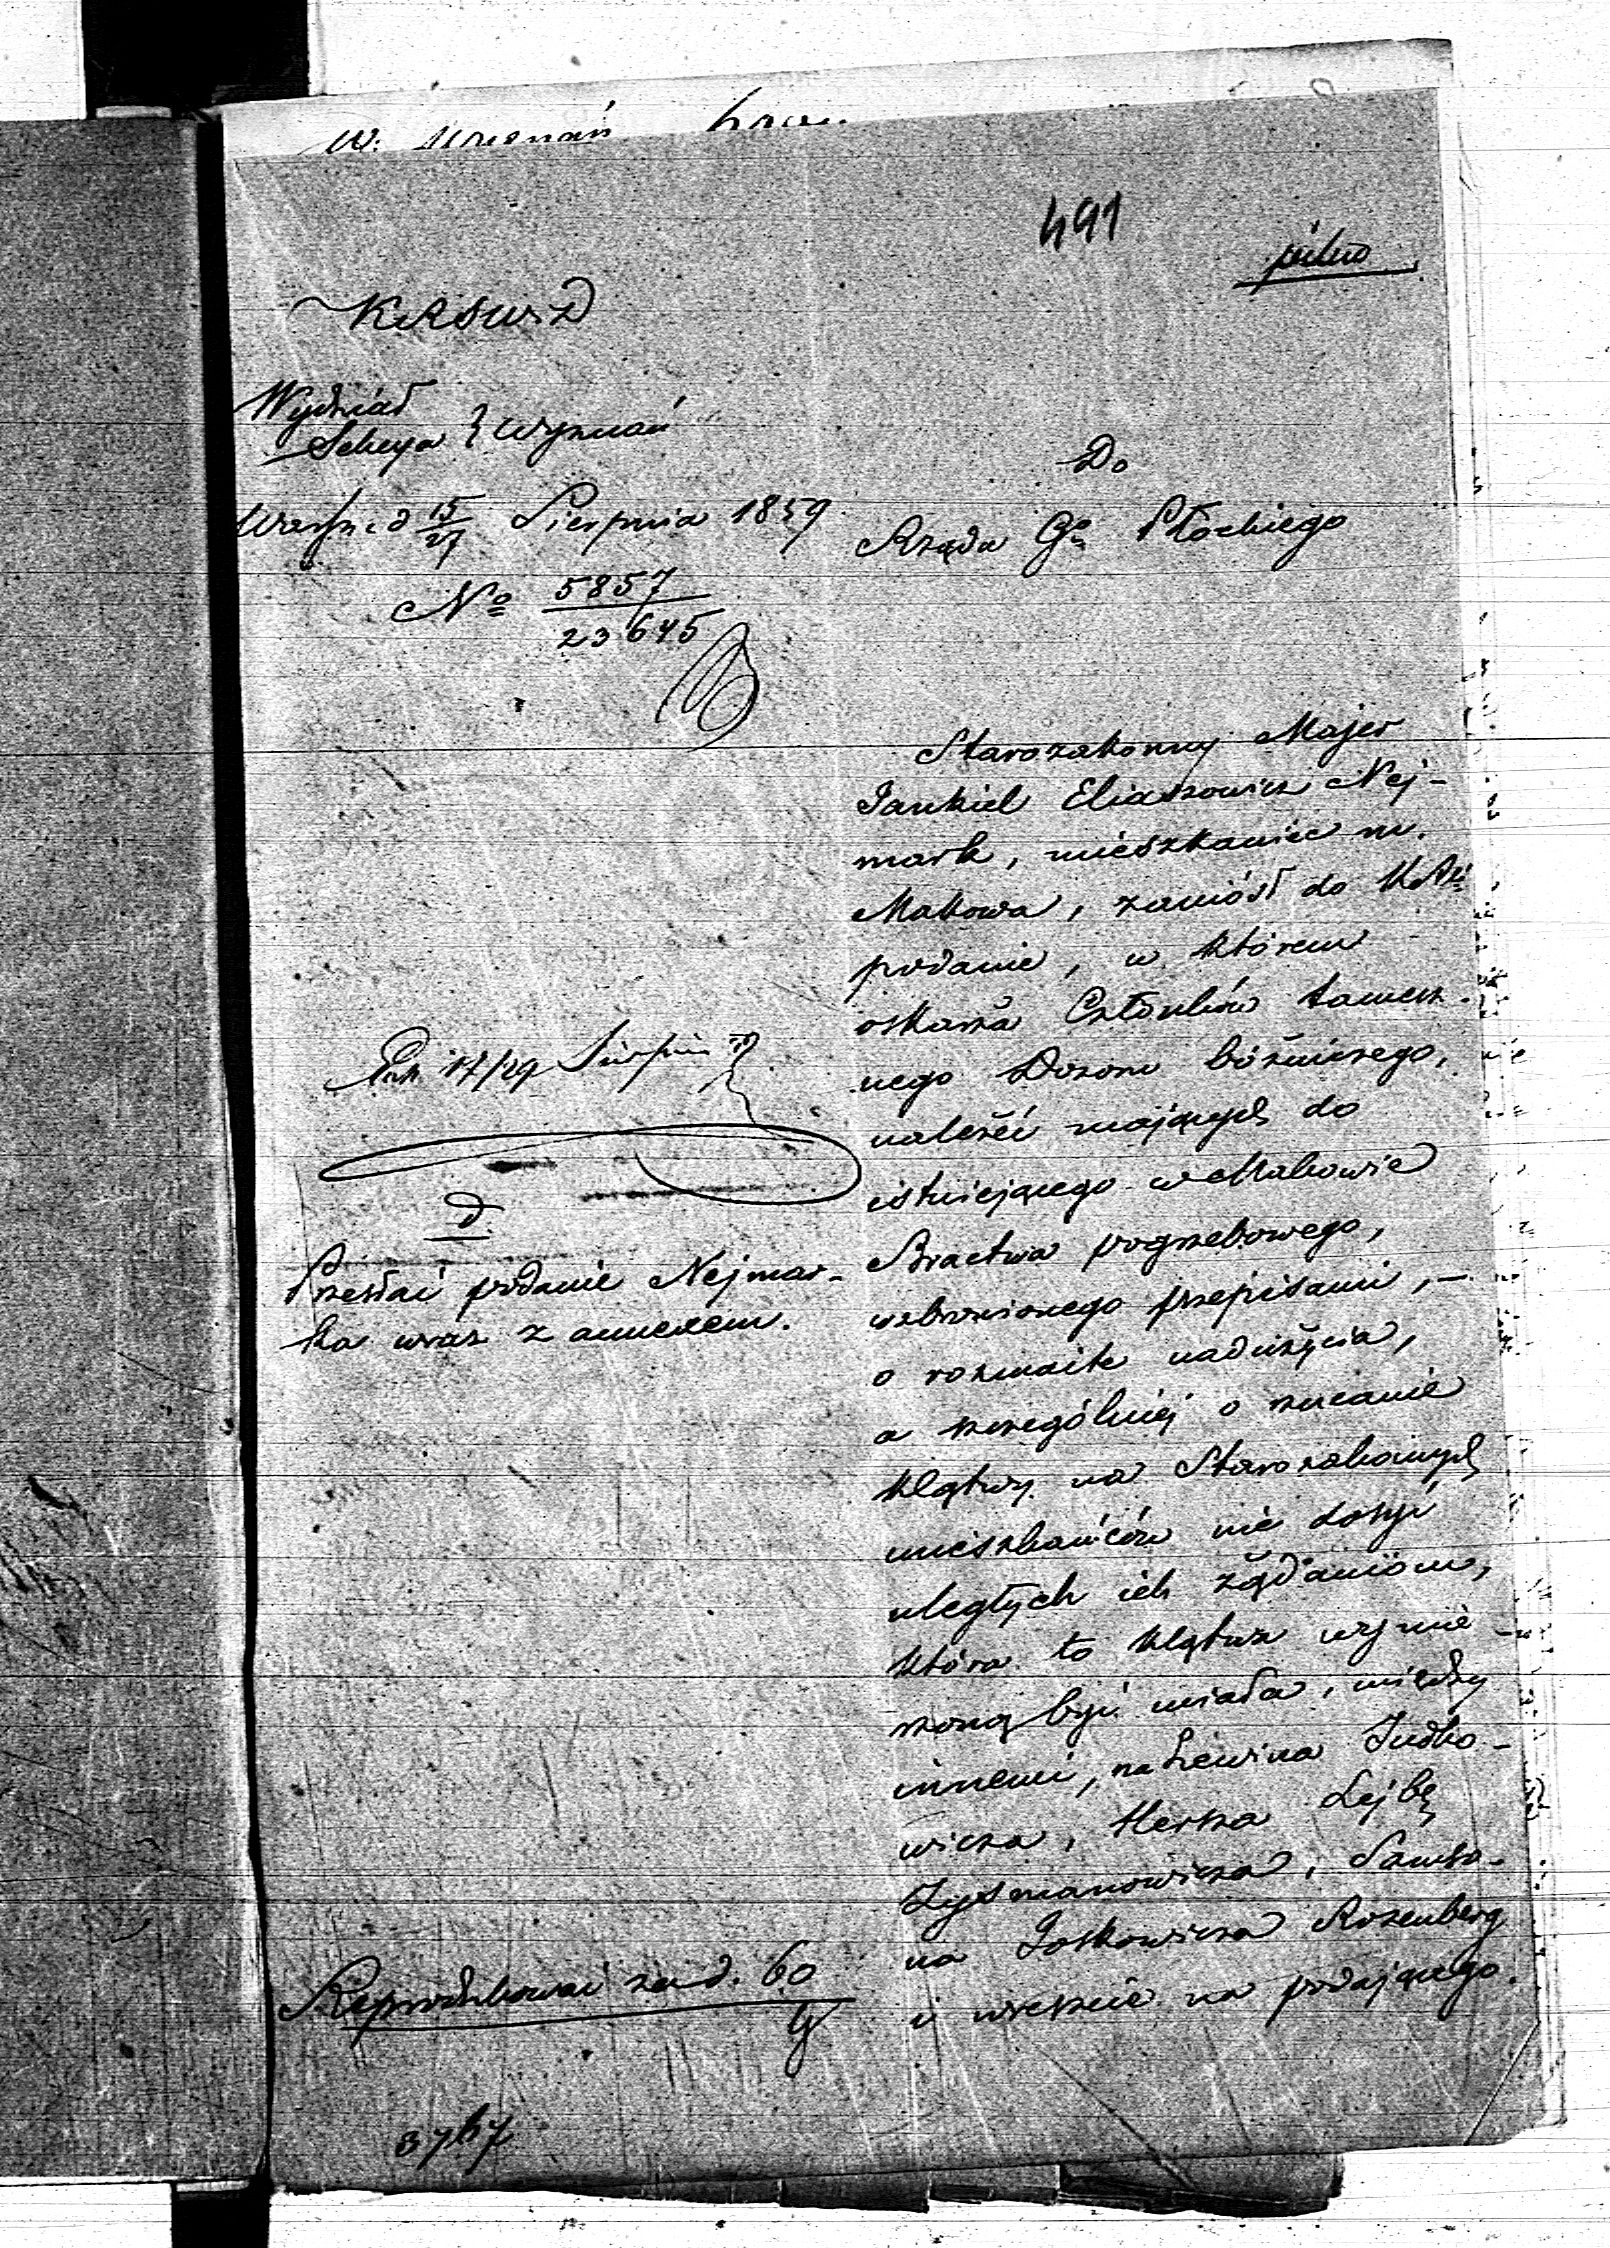 491
pilno
KRSWiD
Wydział
Sekcya } Wyznań
Warsz. d 15/27 Sierpnia 1859
No 5857/23645
Do
Rządu Go Płockiego
Starozakonny Majer
Jankiel Eliaszowicz Nej-
mark, mieszkaniec m.
Makowa, zaniósł do KRi
podanie, w którem
oskarża Członków tamecz-
nego Dozoru bóżniczego,
należéć mających do
istniejącego w Makowie
Bractwa pogrzebowego,
wzbronionego przepisami, —
o rozmaite nadużycia,
a szczególniej o rzucanie
klątwy na Starozakonnych
mieszkańców nie dosyć
uległych ich żądaniom,
która to klątwa wymie-
rzoną być miała, między
innemi, na Lewina Judko-
wicza, Herszka Lejbę
Zysmanowicza, Samso-
na Joskowicza Rozenberg
i wreszcie na podającego.
17/29 Sierpnia
d
Przesłać podanie Nejmar-
ka wraz z annexem.
Reprodukować za d. 60
3767